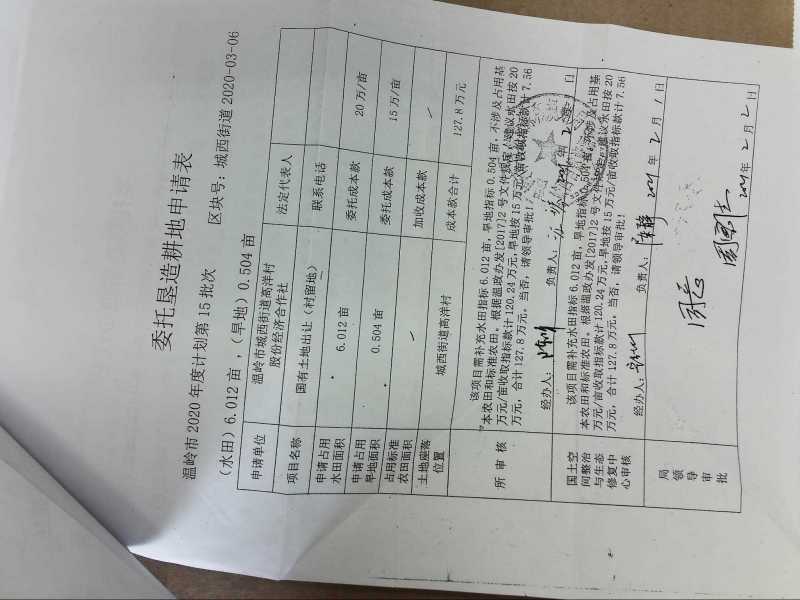 委托垦造耕地申请表
温岭市 2020 年度计划第 15 批次 区块号：城西街道 2020-03-06
（水田）6.012 亩，（旱地）0.504 亩
申请单位 温岭市城西街道高洋村股份经济合作社 法定代表人
项目名称 国有土地出让（村留地） 联系电话
申请占用水田面积 6.012 亩 委托成本款 20 万/亩
申请占用旱地面积 0.504 亩 委托成本款 15 万/亩
占用标准农田面积 / 加收成本款 /
土地座落位置 城西街道高洋村 成本款合计 127.8 万元
所审核
该项目需补充水田指标 6.012 亩，旱地指标 0.504 亩，不涉及占用基
本农田和标准农田。根据温政办发[2017]2 号文件规定，建议水田按 20
万元/亩收取指标款计 120.24 万元,旱地按 15 万元/亩收取指标款计 7.56
万元，合计 127.8 万元。当否，请领导审批！
经办人： 负责人： 年 2 月 1 日
国土空间整治与生态修复中心审核
该项目需补充水田指标 6.012 亩，旱地指标 0.504 亩，不涉及占用基
本农田和标准农田。根据温政办发[2017]2 号文件规定，建议水田按 20
万元/亩收取指标款计 120.24 万元,旱地按 15 万元/亩收取指标款计 7.56
万元，合计 127.8 万元。当否，请领导审批！
经办人： 负责人： 2021 年 2 月 1 日
局领导审批
2021 年 2 月 2 日